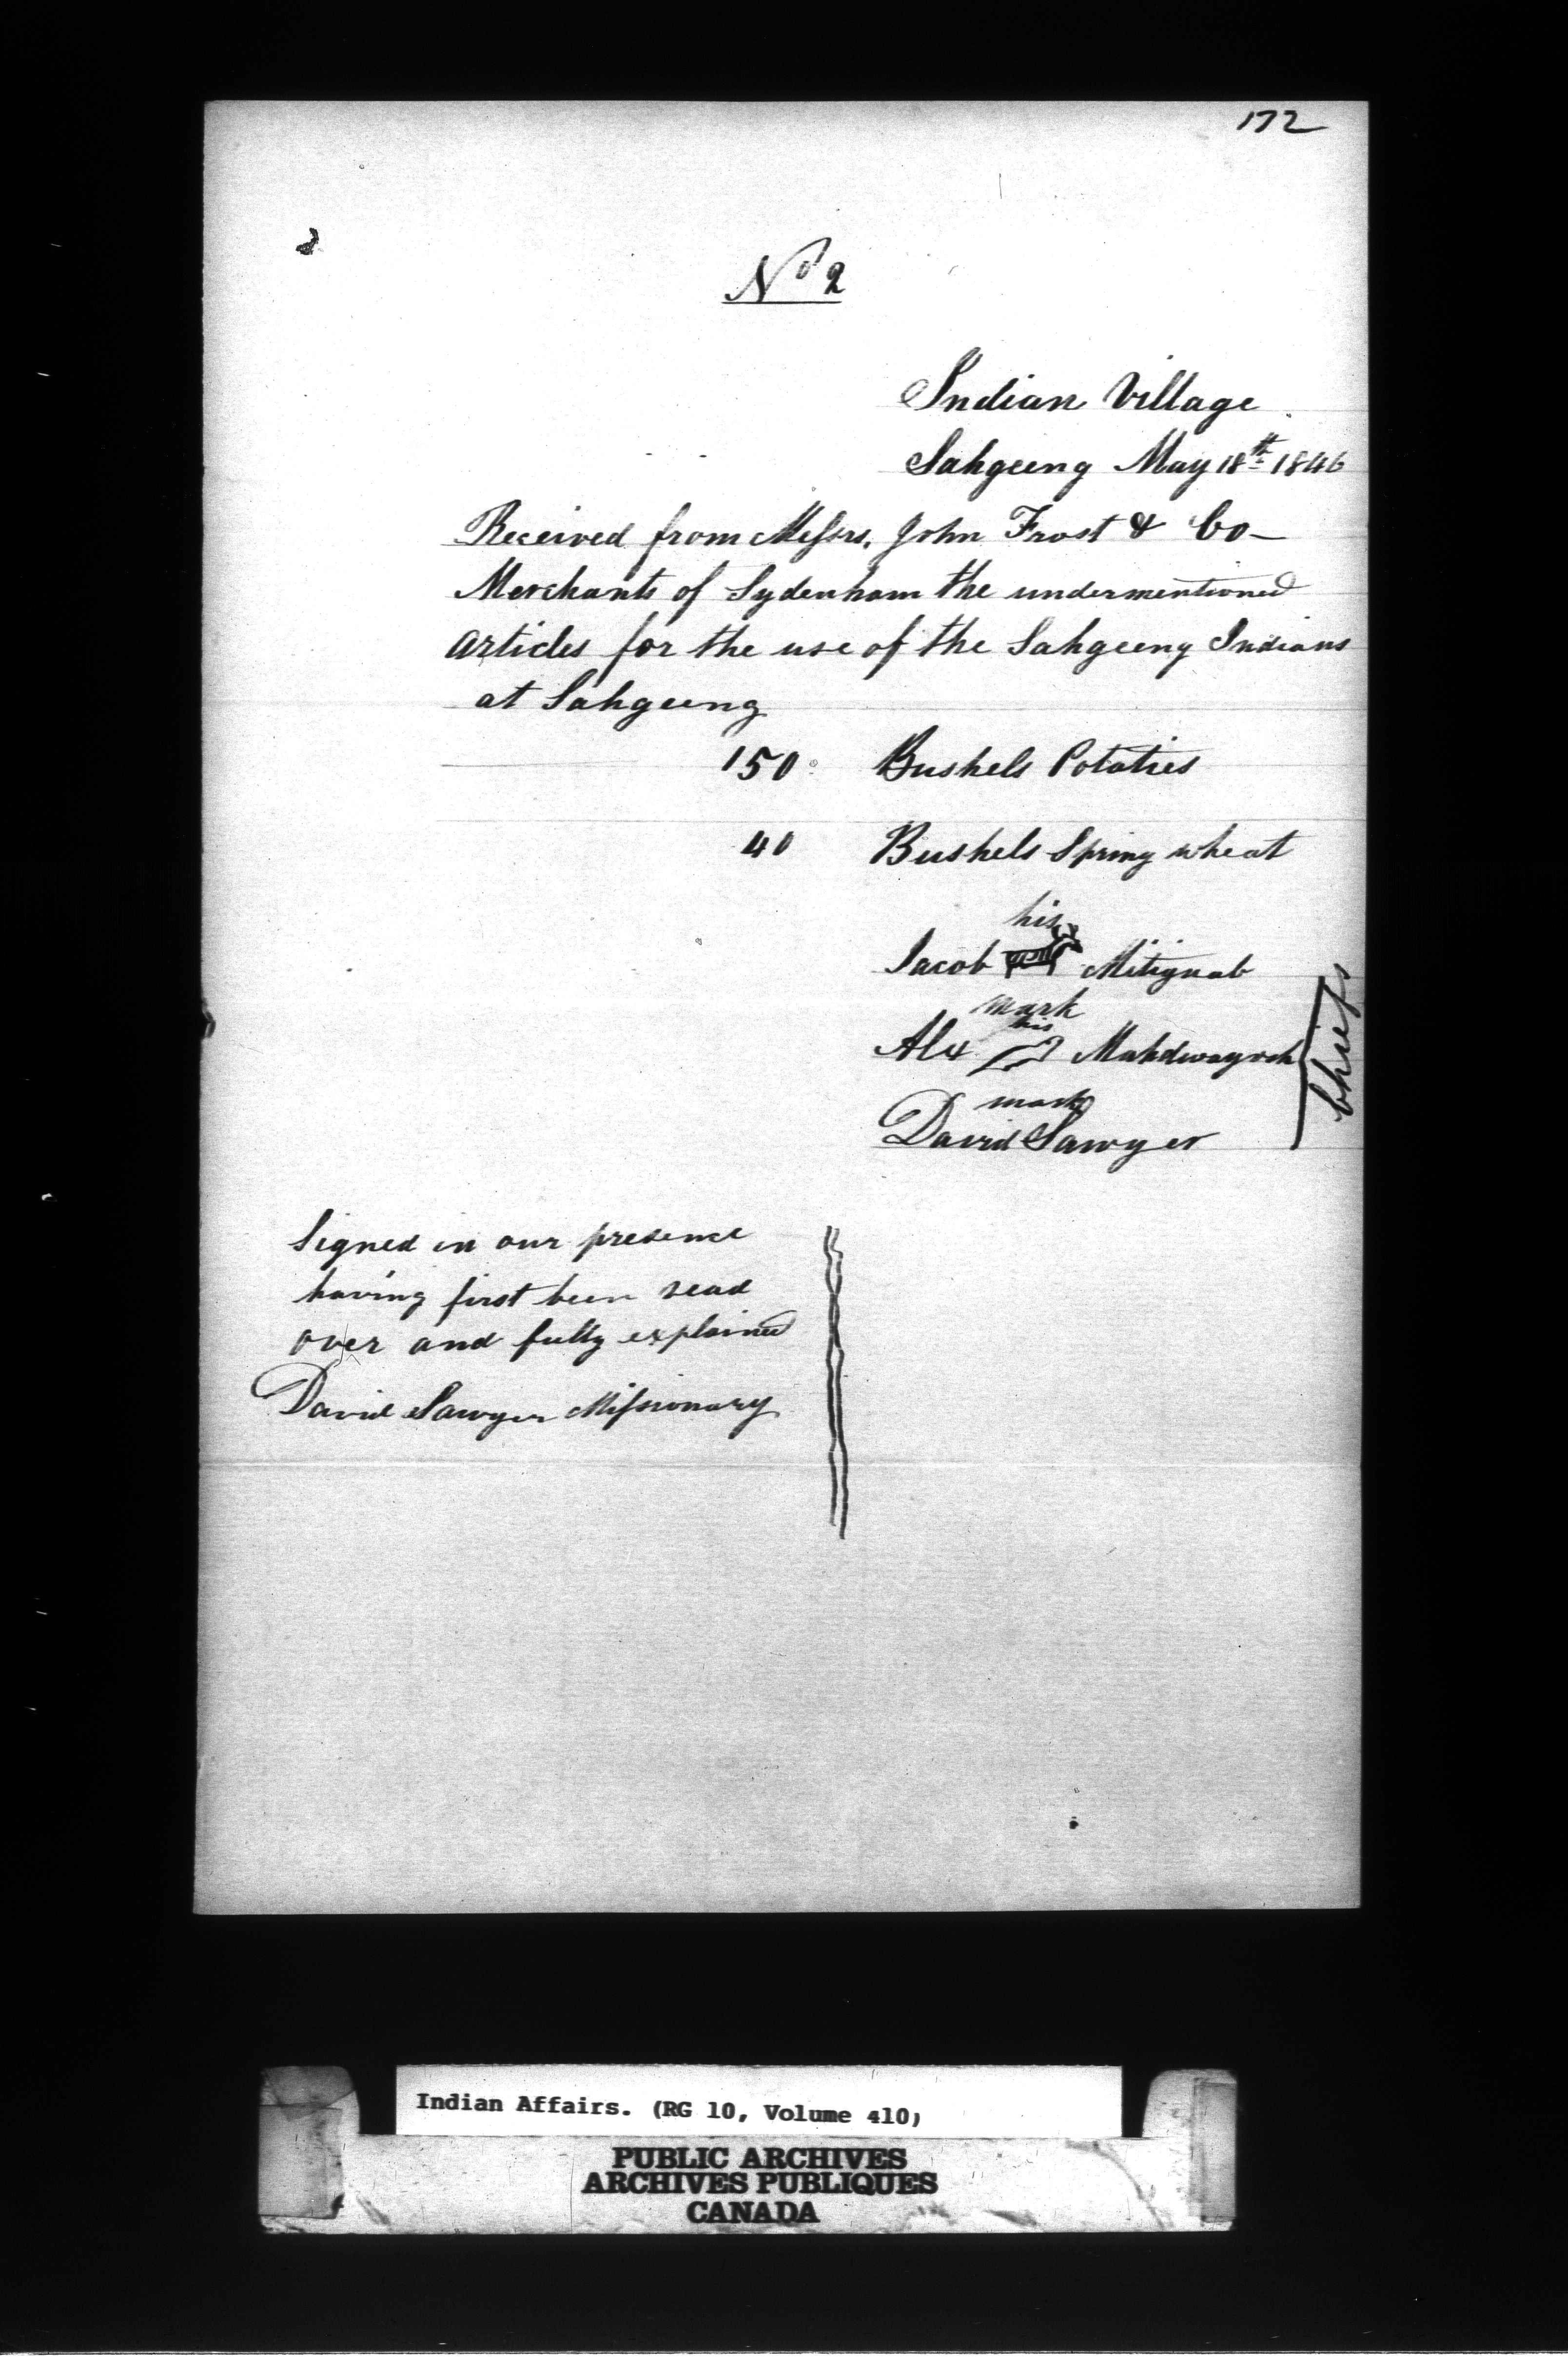 172
No 2
Indian Village
Sahgeeng May 18th 1846
Received from Messrs. John Frost & Co—
Merchants of Sydenham the undermentioned
articles for the use of the Sahgeeng Indians
at Sahgeeng
150 Bushels Potaties
40 Bushels Spring wheat
his
Jacob Mitigwab
mark
his
Alex Mahdwayosh
mark
David Sawyer
Chiefs
Signed in our presence
having first been read
over and fully explained
David Sawyer Missionary
Indian Affairs. (RG 10, Volume 410)
PUBLIC ARCHIVES
ARCHIVES PUBLIQUES
CANADA